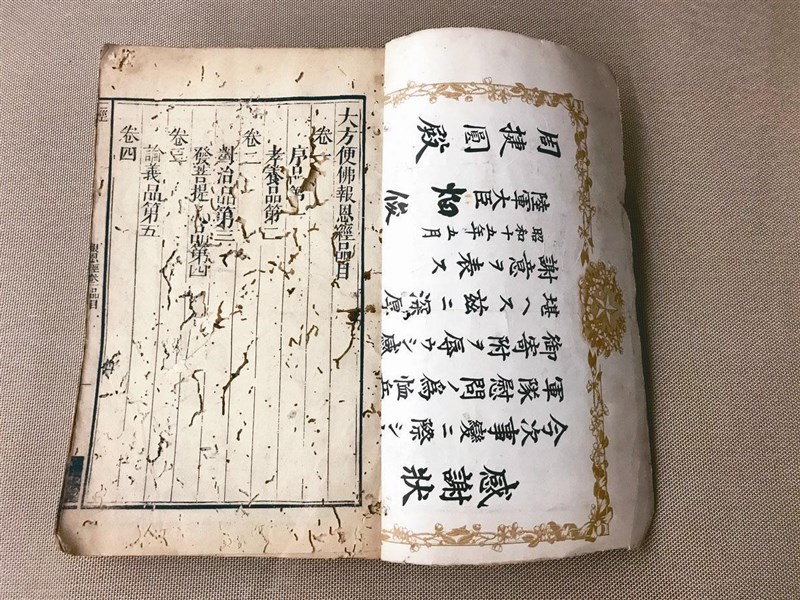 感謝狀
今次事變ニ際シ
軍隊慰問ノ為恤兵
御寄附ヲ辱ウシ感
堪ヘス茲ニ深厚
謝意ヲ表ス
昭和十五年五月
陸軍大臣 畑 俊
周捷圓殿
大方便佛報恩經品目
卷一
序品第一
孝養品第二
卷二
對治品第三
發菩提心品第四
卷三
論義品第五
卷四